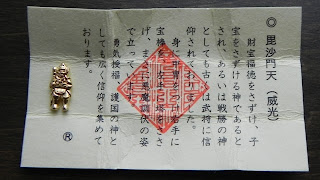 ◎ 毘沙門天(威光)
財宝福徳をさずけ、子
宝をさずける神であると
され、あるいは戦勝の神
としても古くは武将に信
仰されておりました。
身に甲冑をつけ右手に
宝棒、塔をささ
げ、まさに悪魔降伏の姿
で立っています。
勇気授福、護国の神と
しても広く信仰を集めて
おります。
Ⓡ